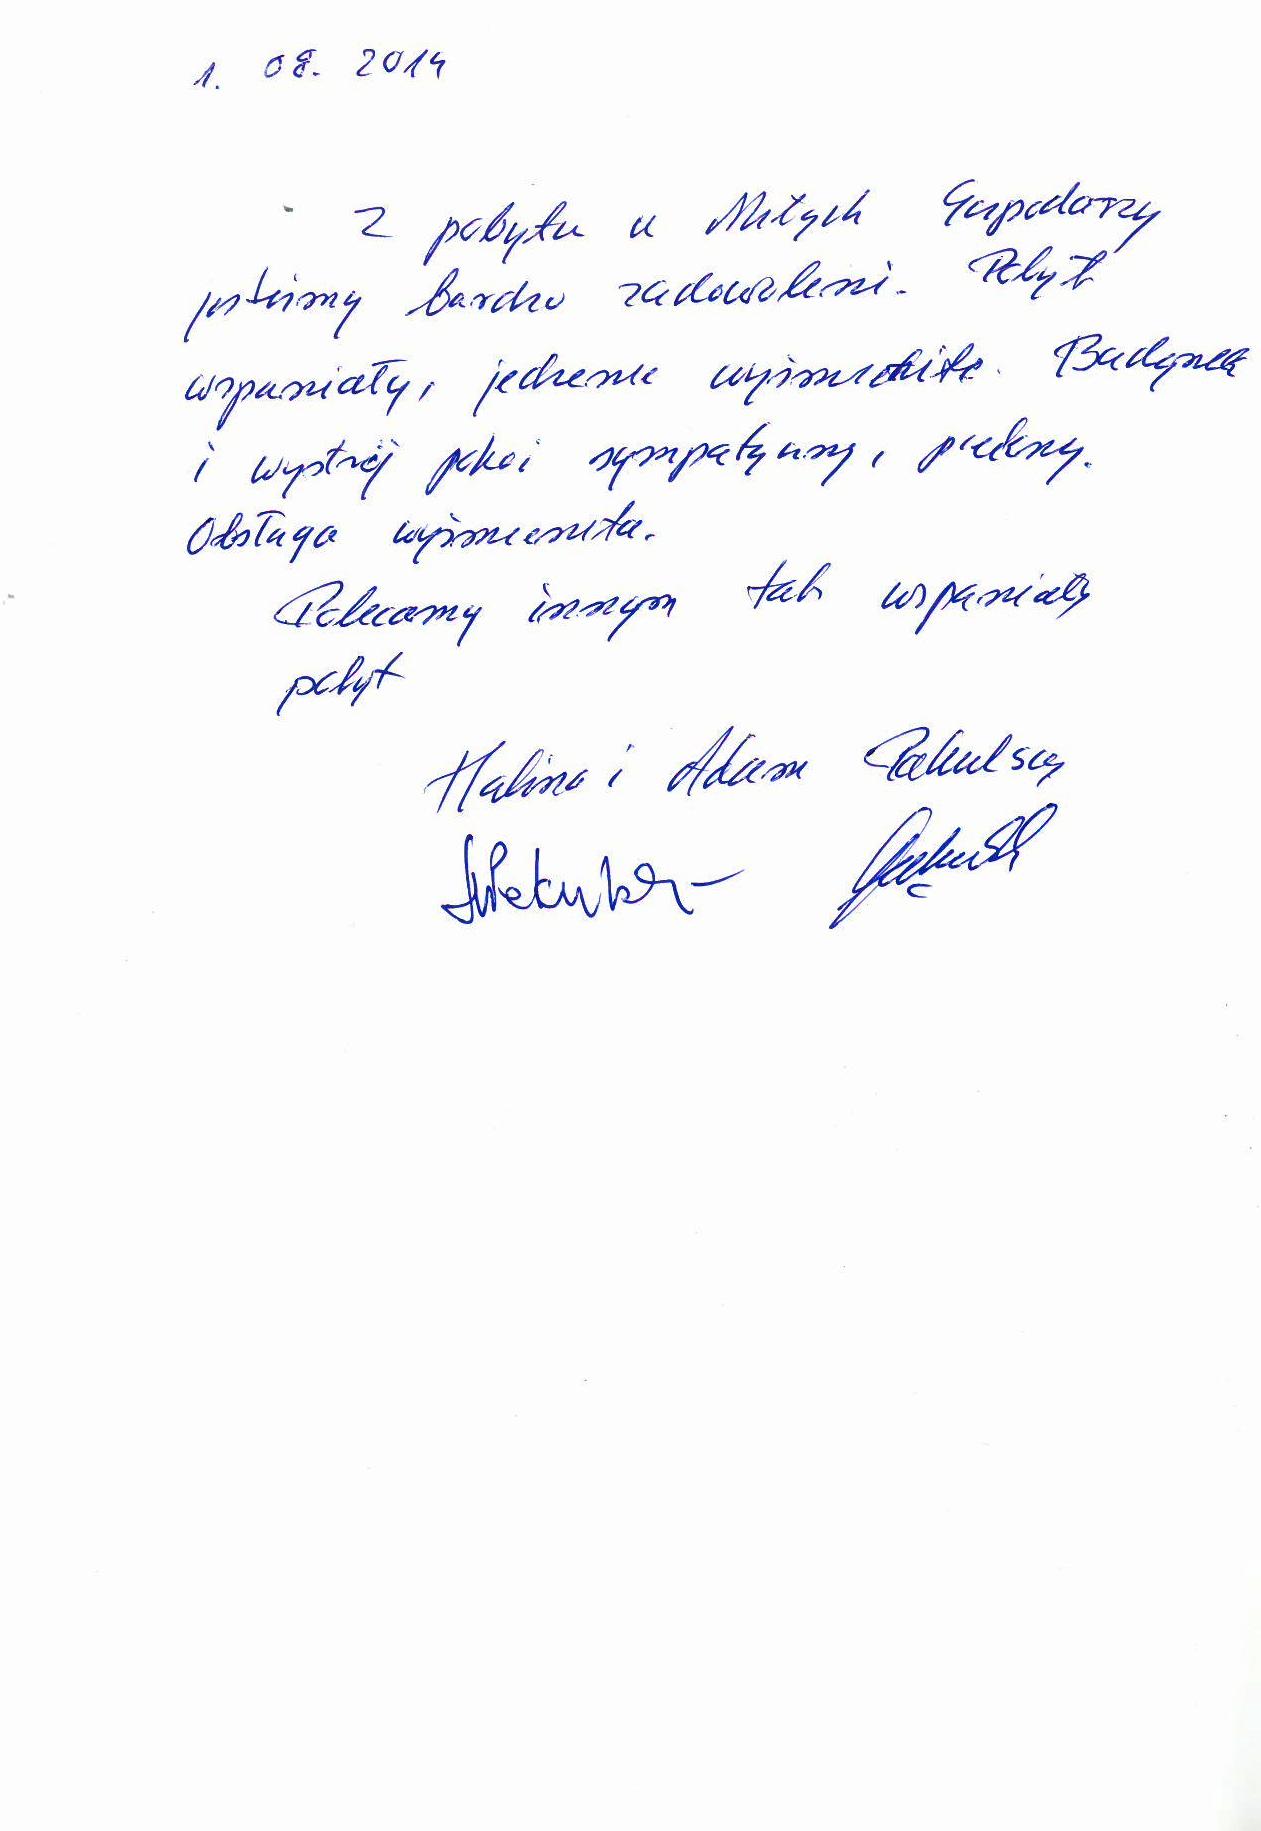 1. 08. 2014
Z pobytu u Miłych Gospodarzy
jesteśmy bardzo zadowoleni. Pobyt
wspaniały, jedzenie wyśmienite. Budynek
i wystrój pokoi sympatyczny, piękny.
Obsługa wyśmienita.
Polecamy innym tak wspaniały
pobyt
Halina i Adam Pakulscy